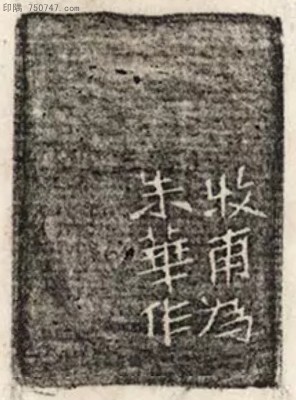 印隅 750747.com
牧甫為
朱華作